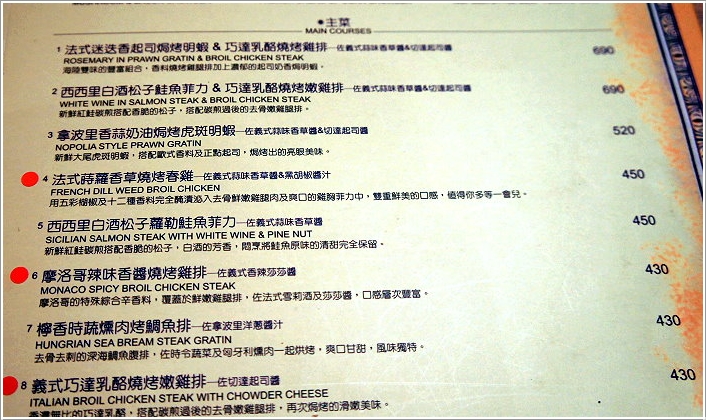 ●主菜
MAIN COURSES
1 法式迷迭香起司焗烤明蝦 & 巧達乳酪燒烤雞排—佐義式蒜味香草醬&切達起司醬 690
ROSEMARY IN PRAWN GRATIN & BROIL CHICKEN STEAK
海陸雙味的豐富組合，香料燒烤雞腿排加上濃郁的起司奶香焗明蝦。
2 西西里白酒松子鮭魚菲力 & 巧達乳酪燒烤嫩雞排—佐義式蒜味香草醬&切達起司醬 690
WHITE WINE IN SALMON STEAK & BROIL CHICKEN STEAK
新鮮紅鮭碳煎搭配香脆的松子，搭配碳煎過後的去骨嫩雞腿排。
3 拿波里香蒜奶油焗烤虎斑明蝦—佐義式蒜味香草醬&切達起司醬 520
NOPOLIA STYLE PRAWN GRATIN
新鮮大尾虎斑明蝦，搭配歐式香料及正點起司，焗烤出的亮眼美味。
4 法式蒔蘿香草燒烤春雞—佐義式蒜味香草醬&黑胡椒醬汁 450
FRENCH DILL WEED BROIL CHICKEN
用五彩椒及十二種香料完全醃漬浸入去骨鮮嫩雞腿肉及爽口的雞胸菲力中，雙重鮮美的口感，值得你多等一會兒。
5 西西里白酒松子蘿勒鮭魚菲力—佐義式蒜味香草醬 450
SICILIAN SALMON STEAK WITH WHITE WINE & PINE NUT
新鮮紅鮭碳煎搭配香脆的松子，白酒的芳香，悶烹將鮭魚原味的清甜完全保留。
6 摩洛哥辣味香醬燒烤雞排—佐義式香辣莎莎醬 430
MONACO SPICY BROIL CHICKEN STEAK
摩洛哥的特殊綜合辛香料，覆蓋於鮮嫩雞腿排，佐法式雪莉酒及莎莎醬，口感層次豐富。
7 檸香時蔬燻肉烤鯛魚排—佐拿波里洋蔥醬汁 430
HUNGRIAN SEA BREAM STEAK GRATIN
去骨去刺的深海鯛魚腹排，佐時令蔬菜及匈牙利燻肉一起烘烤，爽口甘甜，風味獨特。
8 義式巧達乳酪燒烤嫩雞排—佐切達起司醬 430
ITALIAN BROIL CHICKEN STEAK WITH CHOWDER CHEESE
香濃無比的巧達乳酪，搭配碳煎過後的去骨嫩雞腿排，再次焗烤的滑嫩美味。